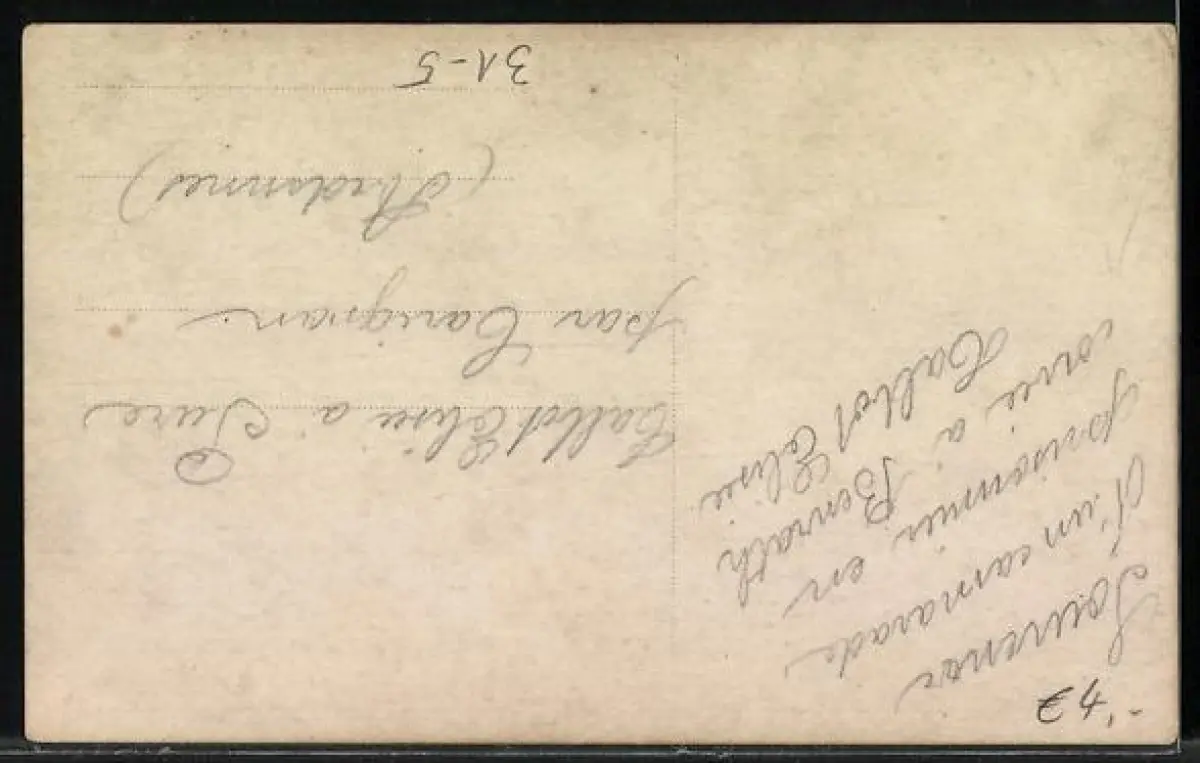 Souvenir
d'un camarade
prisonnier en
à Benrath
Callot Elisée
Callot Elisée à Sure
par Carignan
(Ardennes)
31-5